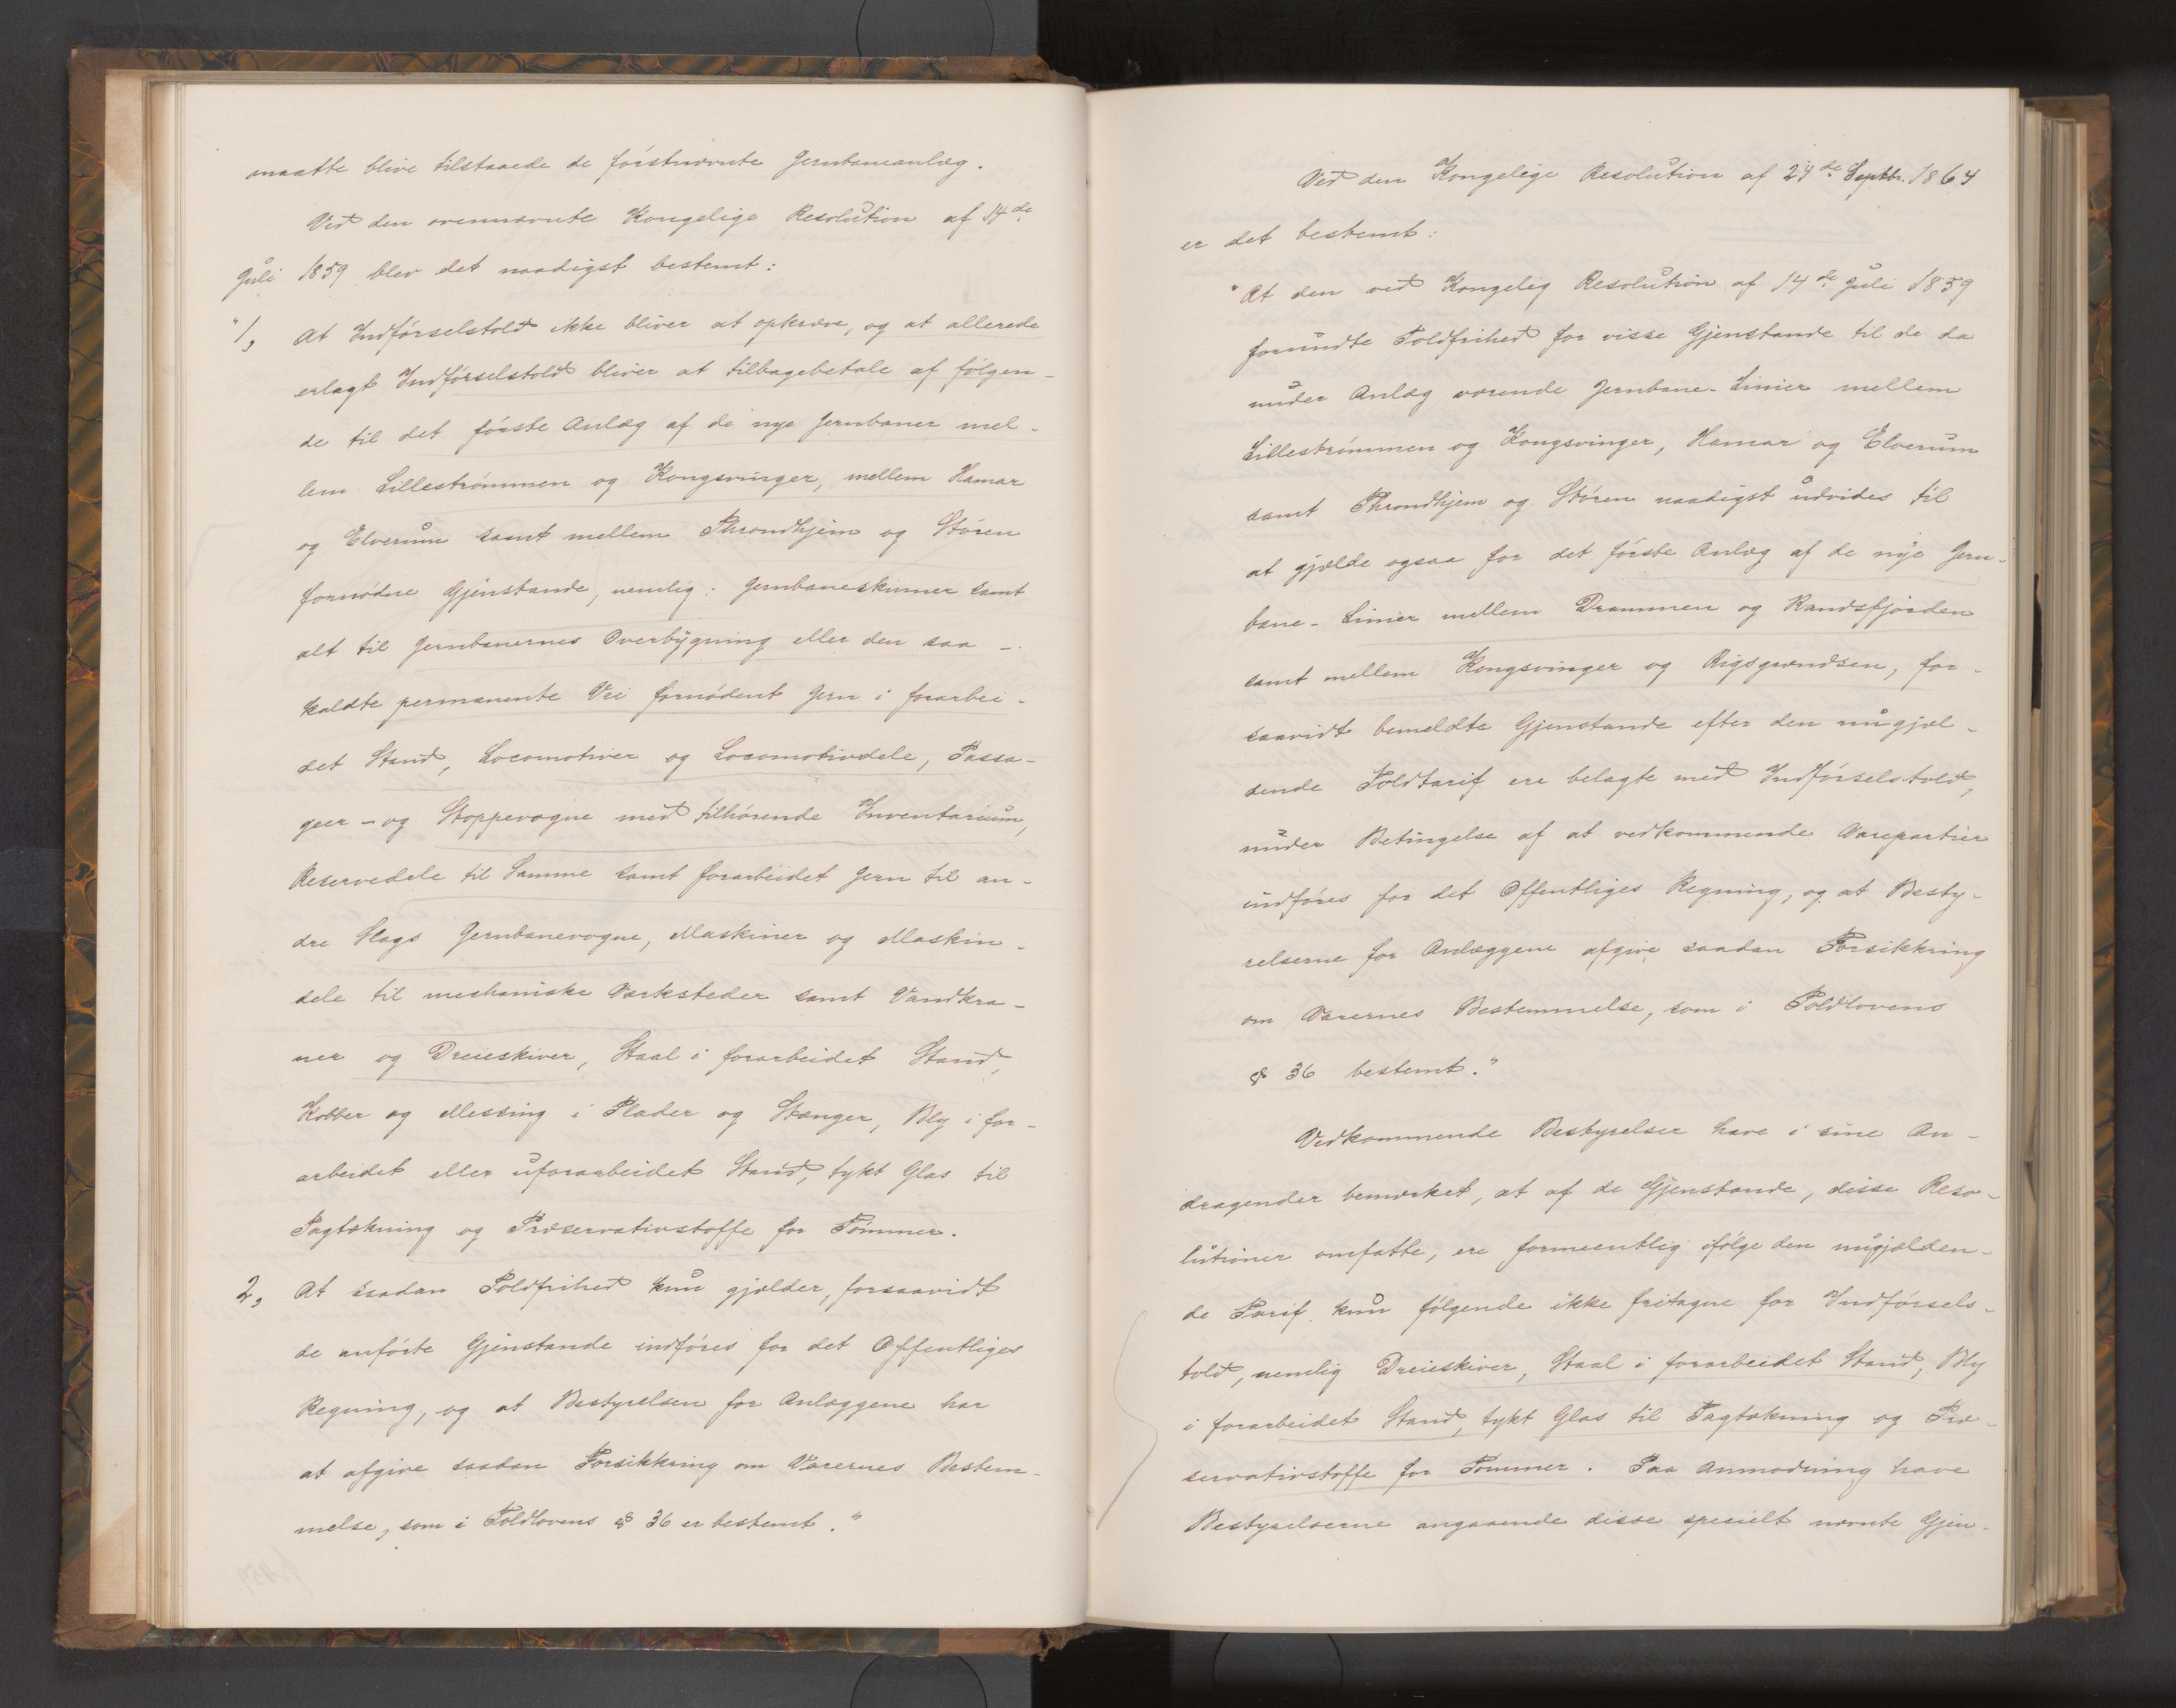 maatte blive tilstaaede de förstnævnte Jernbaneanlæg.
Ved den ovennævnte Kongelige Resolution af 14de
Juli 1859 blev det naadigst bestemt:
"1, At Indförselstold ikke bliver at opkræve, og at allerede
erlagt Indförselstold bliver at tilbagebetale af fölgen-
de til det förste Anlæg af de nye Jernbaner mel-
lem Lilleströmmen og Kongsvinger, mellem Hamar
og Elverum samt mellem Throndhjem og Stören
fornödne Gjenstande, nemlig: Jernbaneskinner samt
alt til Jernbanernes Overbygning eller den saa-
kaldte permanente Vei fornödent Jern i forarbei-
det Stand, Locomotiver og Locomotivdele, Passa-
geer- og Stoppevogne med tilhörende Inventarium,
Reservedele til Samme samt forarbeidet Jern til an-
dre Slags Jernbanevogne, Maskiner og Maskin-
dele til mechaniske Værksteder samt Vandkra-
ner og Dreieskiver, Staal i forarbeidet Stand,
Kobber og Messing i Plader og Stænger, Bly i for-
arbeidet eller uforarbeidet Stand, tykt Glas til
Tagtækning og Præservativstoffe for Tömmer.
2, At saadan Toldfrihed kun gjælder, forsaavidt
de anförte Gjenstande indföres for det Offentliges
Regning, og at Bestyrelsen for Anlæggene har
at afgive saadan Forsikkring om Varernes Bestem-
melse, som i Toldlovens § 36 er bestemt."
Ved den Kongelige Resolution af 24de Septbr. 1864
er det bestemt:
"At den ved Kongelig Resolution af 14de Juli 1859
forundte Toldfrihed for visse Gjenstande til de da
under Anlæg værende Jernbane-Linier mellem
Lilleströmmen og Kongsvinger, Hamar og Elverum
samt Throndhjem og Stören naadigst udvides til
at gjælde ogsaa for det förste Anlæg af de nye Jern-
bane-Linier mellem Drammen og Randsfjorden
samt mellem Kongsvinger og Rigsgrændsen, for-
saavidt bemeldte Gjenstande efter den nugjæl-
dende Toldtarif ere belagte med Indförselstold,
under Betingelse af at vedkommende Varepartier
indföres for det Offentliges Regning, og at Besty-
relserne for Anlæggene afgive saadan Forsikkring
om Varernes Bestemmelse, som i Toldlovens
§ 36 bestemt."
Vedkommende Bestyrelser have i sine An-
dragender bemærket, at af de Gjenstande, disse Reso-
lutioner omfatte, ere formeentlig ifölge den nugjælden-
de Tarif kun fölgende ikke fritagne for Indförsels-
told, nemlig Dreieskiver, Staal i forarbeidet Stand, Bly
i forarbeidet Stand, tykt Glas til Tagtækning og Præ-
servativstoffe for Tömmer. Paa Anmodning have
Bestyrelserne angaaende disse specielt nævnte Gjen-